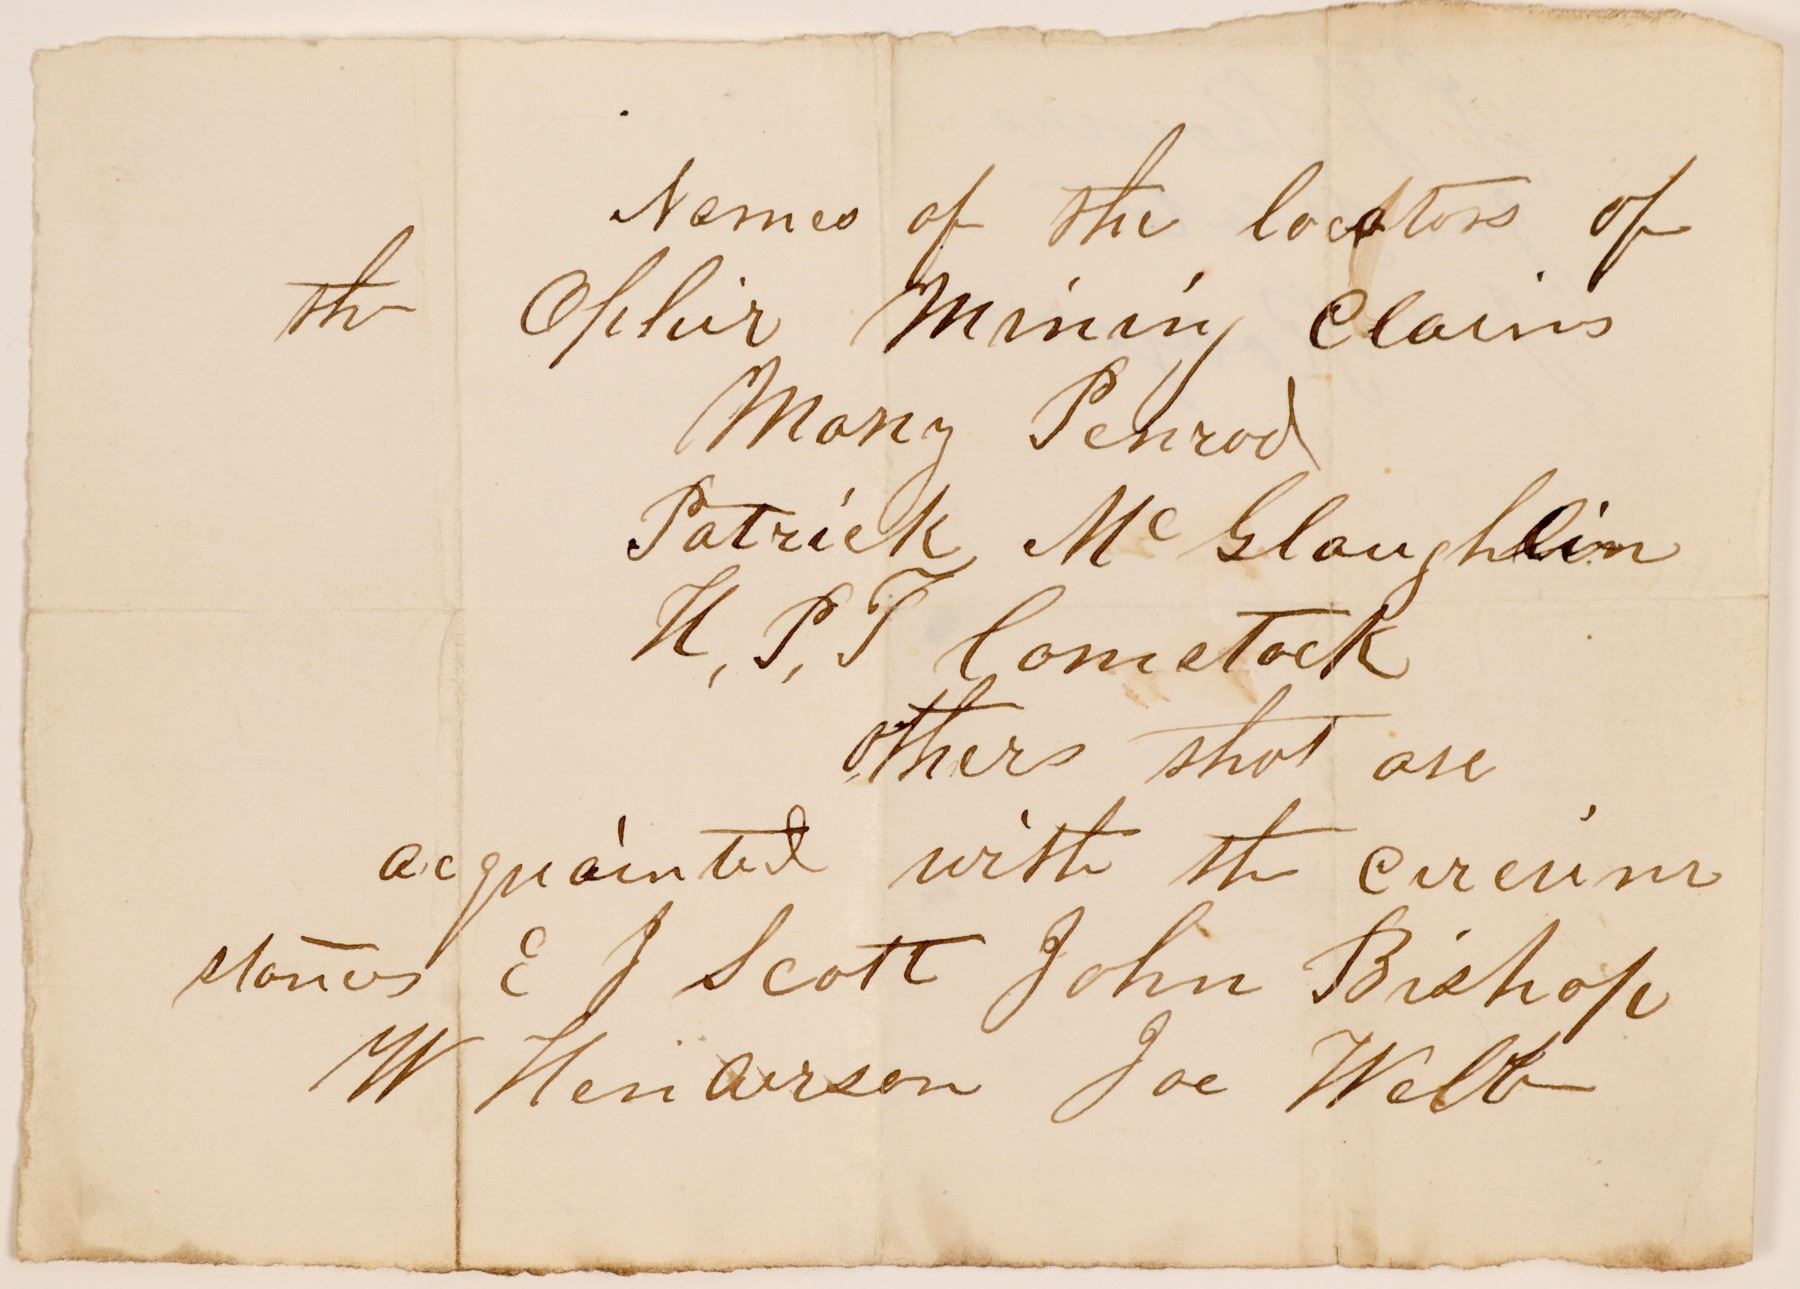 Names of the locators of
the Ophir Mining Claims
Many Penrod
Patrick Mc Glaughlin
H, P, T Comstock
others that are
acquainted with the circum
stances E J Scott John Bishop
W Henderson Joe Webb